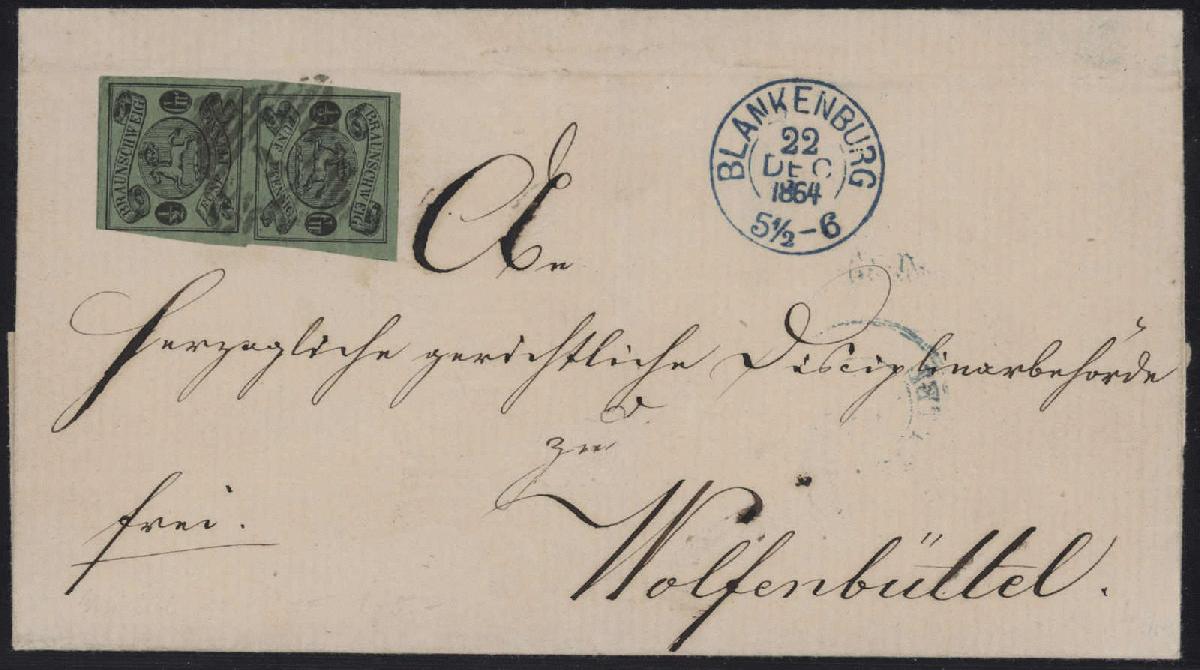 BRAUNSCHWEIG
BRAUNSCHWEIG
BLANKENBURG
22
DEC
1864
5½-6
An
Herzogliche gerichtliche Disciplinarbehörde
zu
frei.
Wolfenbüttel.